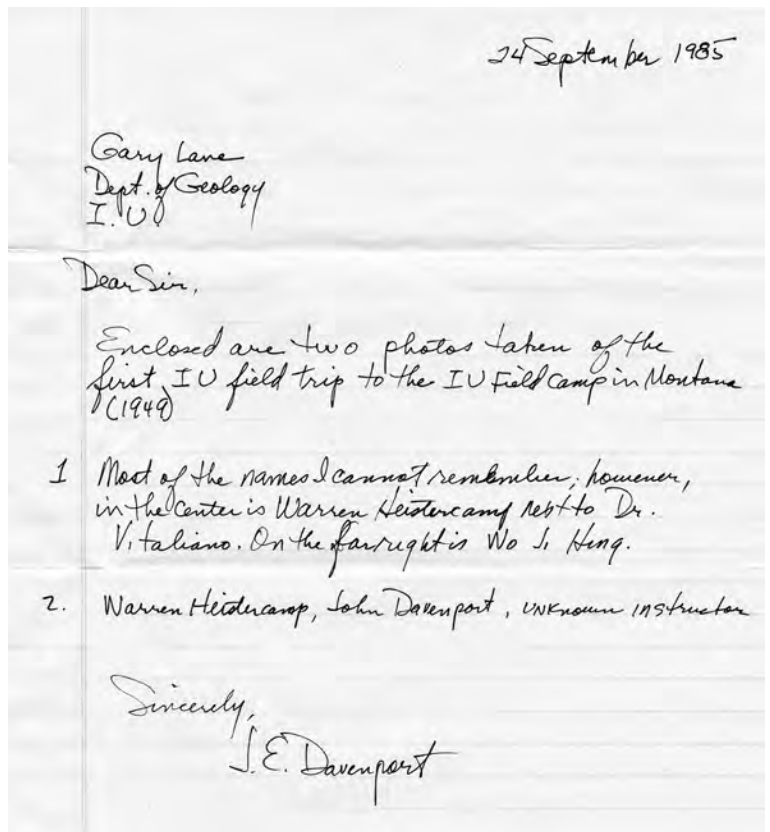 24 September 1985
Gary Lane
Dept. of Geology
I.U.
Dear Sir,
Enclosed are two photos taken of the
first IU field trip to the IU Field camp in Montana
(1949)
1 Most of the names I cannot remember; however,
in the center is Warren Heistercamp next to Dr.
Vitaliano. On the far right is Wo Ji Heng.
2. Warren Heistercamp, John Davenport, unknown instructor
Sincerely,
J. E. Davenport